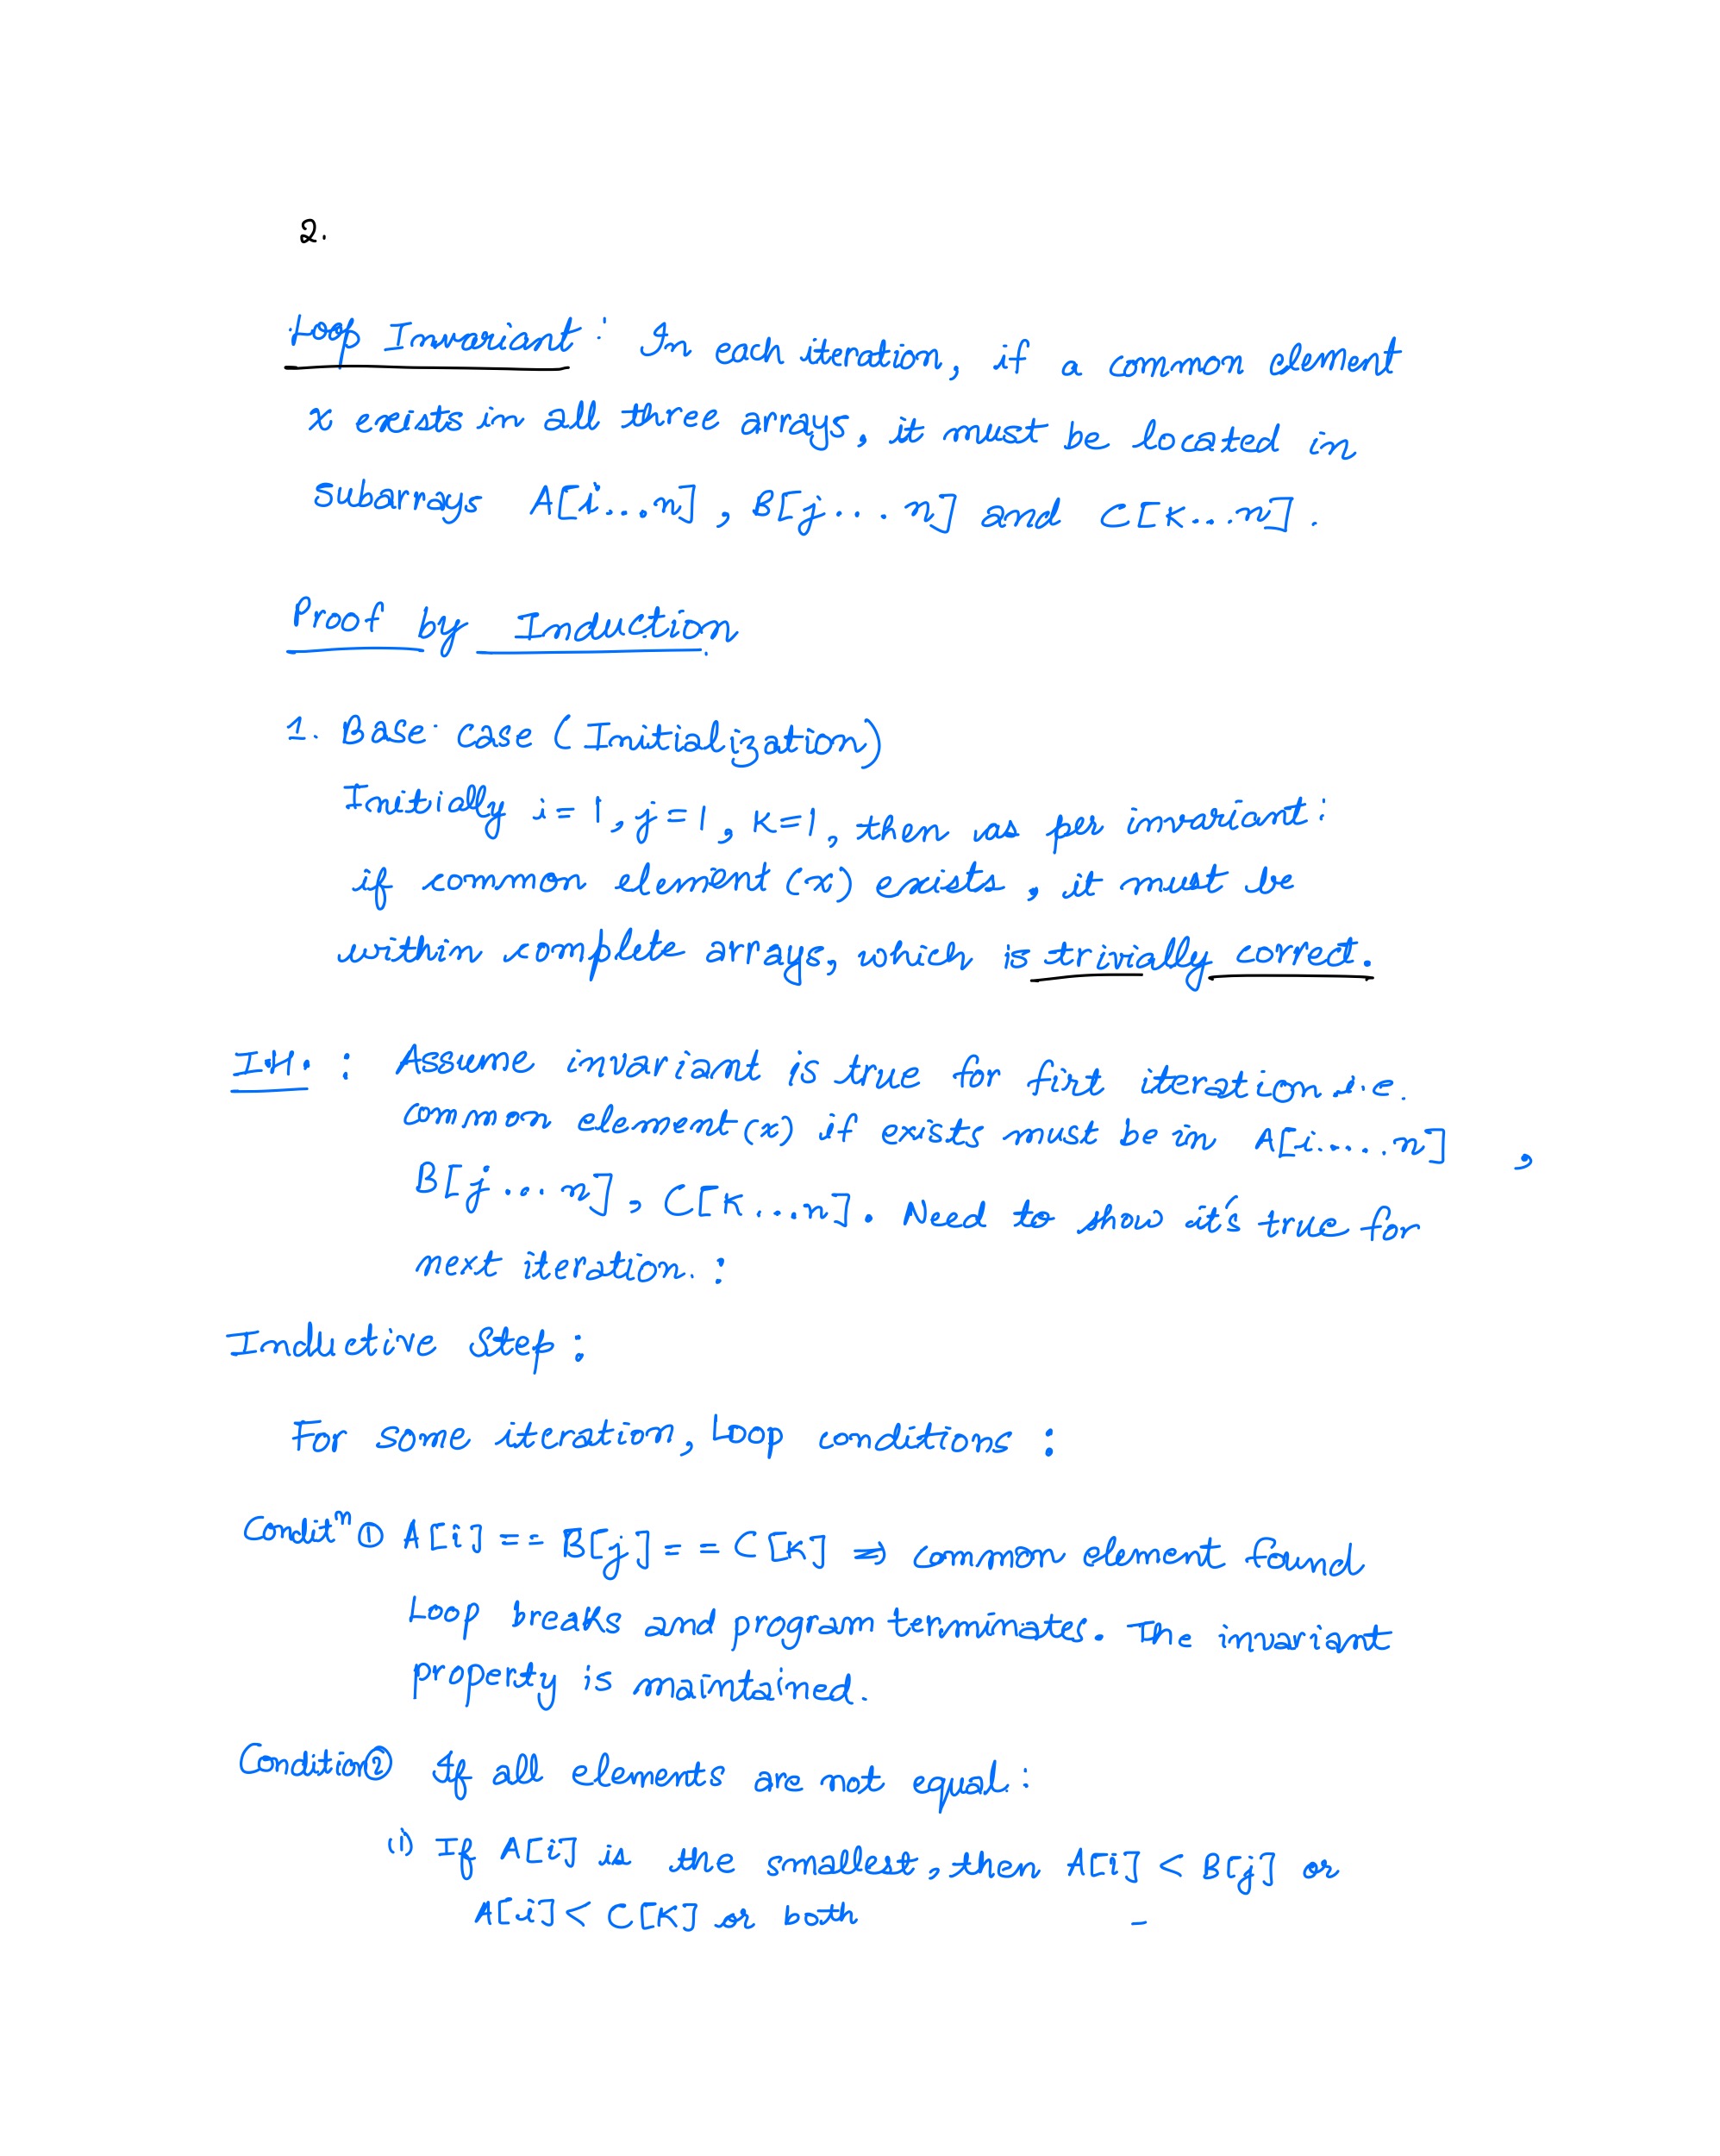 2.
Loop Invariant : In each iteration, if a common element
x exists in all three arrays, it must be located in
subarrays A[i...n], B[j... n] and C[K...n].
Proof by Induction
1. Base case (Initialization)
Initially i = 1, j = 1, K=1, then as per invariant :
if common element (x) exists, it must be
within complete arrays, which is trivially correct.
I.H. : Assume invariant is true for firt iteration i.e.
common element (x) if exists must be in A[i.....n] ,
B[j ... n], C[K...n]. Need to show it's true for
next iteration. :
Inductive Step :
For some iteration, Loop conditions :
Conditⁿ ① A[i] == B[j] == C[K] ⇒ common element found
Loop breaks and program terminates. The invariant
property is maintained.
Condition② If all elements are not equal :
(i) If A[i] is the smallest, then A[i] < B[j] or
A[i] < C[K] or both –